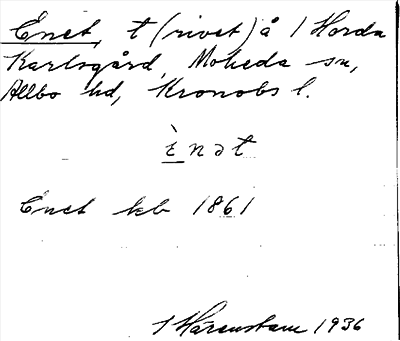 Enet, t (rivet) å 1 Horda
Karlsgård, Moheda sn,
Allbo hd, Kronobs l.
ènət
Enet kb 1861
I Härenstam 1936